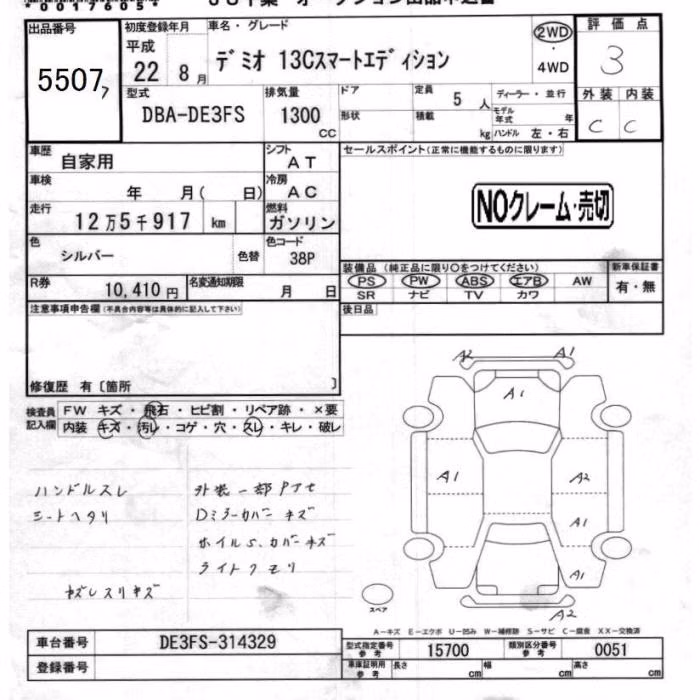 *00170054*
出品番号 初度登録年月 車名・グレード 評価点
平成 22年 8月 デミオ 13Cスマートエディション 2WD・4WD 3
5507
型式 排気量 ドア 定員 ディーラー・並行 外装 内装
DBA-DE3FS 1300cc 5人 C C
形状 積載 kg モデル年式 年
ハンドル 左・右
車歴 自家用 シフト AT セールスポイント(正常に機能するものに限ります)
車検 年 月( 日) 冷房 AC
走行 12万5千917 km 燃料 ガソリン NOクレーム・売切
色 シルバー 色替 色コード 38P
装備品(純正品に限り○をつけてください) 新車保証書
R券 10,410円 名変通知期限 月 日 PS PW ABS エアB AW 有・無
SR ナビ TV カワ
注意事項申告欄(不具合内容等は具体的に記入して下さい) 後日品
修復歴 有〔箇所 〕
検査員記入欄 FW キズ・飛石・ヒビ割・リペア跡・×要
内装 キズ・汚レ・コゲ・穴・スレ・キレ・破レ
A2 A1
A1
A1 A2
A1
A1
A2
ハンドルスレ 外装一部Pアセ
シートヘタリ Dミラーカバーキズ
ホイルS.カバーキズ
ライトクモリ
ガズレスリキズ
スペア
A-キズ E-エクボ U-凹み W-補修跡 S-サビ C-腐食 XX-交換済
車台番号 DE3FS-314329 型式指定番号 参考 15700 類別区分番号 参考 0051
登録番号 車庫証明用 参考 長さ cm 幅 cm 高さ cm